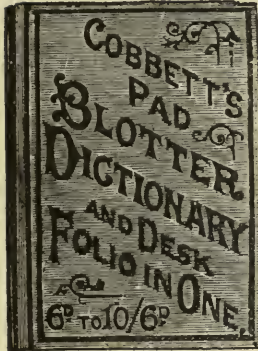 COBBETT'S
PAD
BLOTTER
DICTIONARY
AND DESK
FOLIO IN ONE,
6D. TO 10/6D.